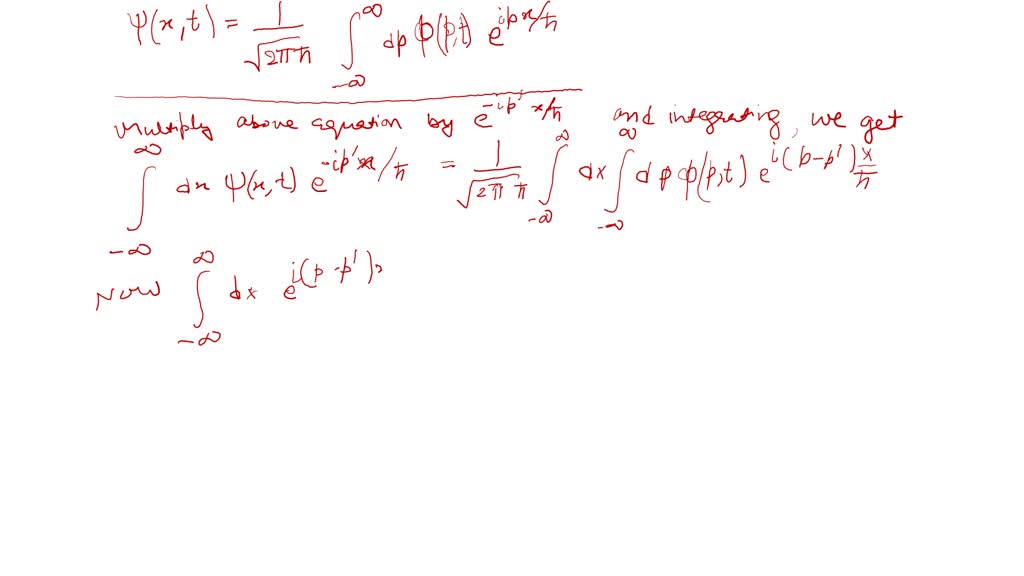 ψ(x,t) = 1/√2πħ ∫_{-∞}^{∞} dp φ(p,t) e^{ipx/ħ}
Multiply above equation by e^{-ip'x/ħ} and integrating, we get
∫_{-∞}^{∞} dx ψ(x,t) e^{-ip'x/ħ} = 1/√2πħ ∫_{-∞}^{∞} dx ∫_{-∞}^{∞} dp φ(p,t) e^{i(p-p')x/ħ}
Now ∫_{-∞}^{∞} dx e^{i(p-p')